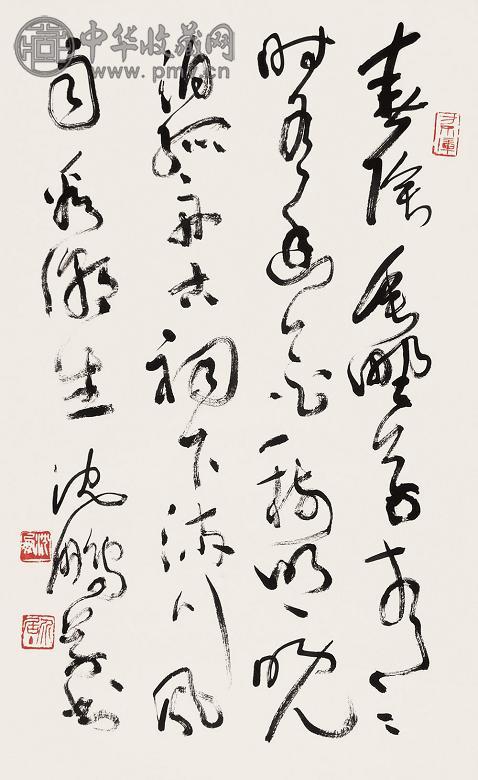 中华收藏网
春阴垂野草青々
时有幽花一树明晚
泊孤舟古祠下满川风
雨看潮生 沈鹏
沈鹏
介居